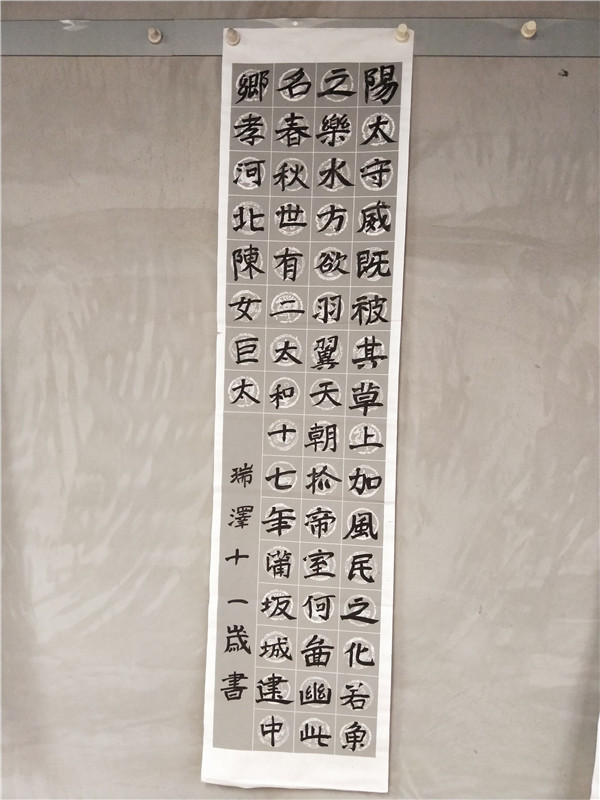 陽太守威既被其草上加風民之化若魚
之樂水方欲羽翼天朝抓帝室何啚幽此
名春秋世有二太和十七年蒲坂城建中
鄉孝河北陳女巨太
瑞澤十一歲書